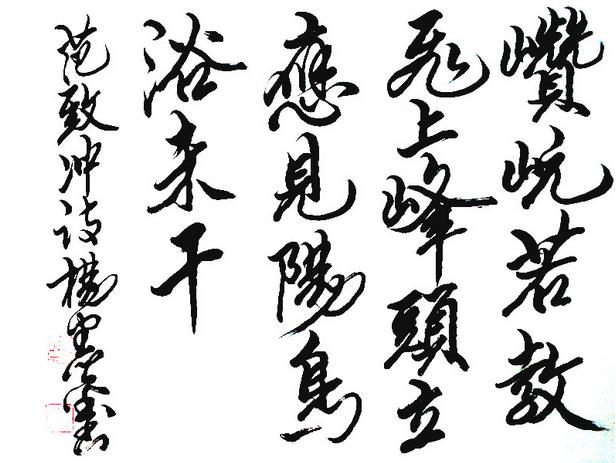 巑岏若教
飛上峰頭立
應見陽烏
浴未干
范致冲诗楊